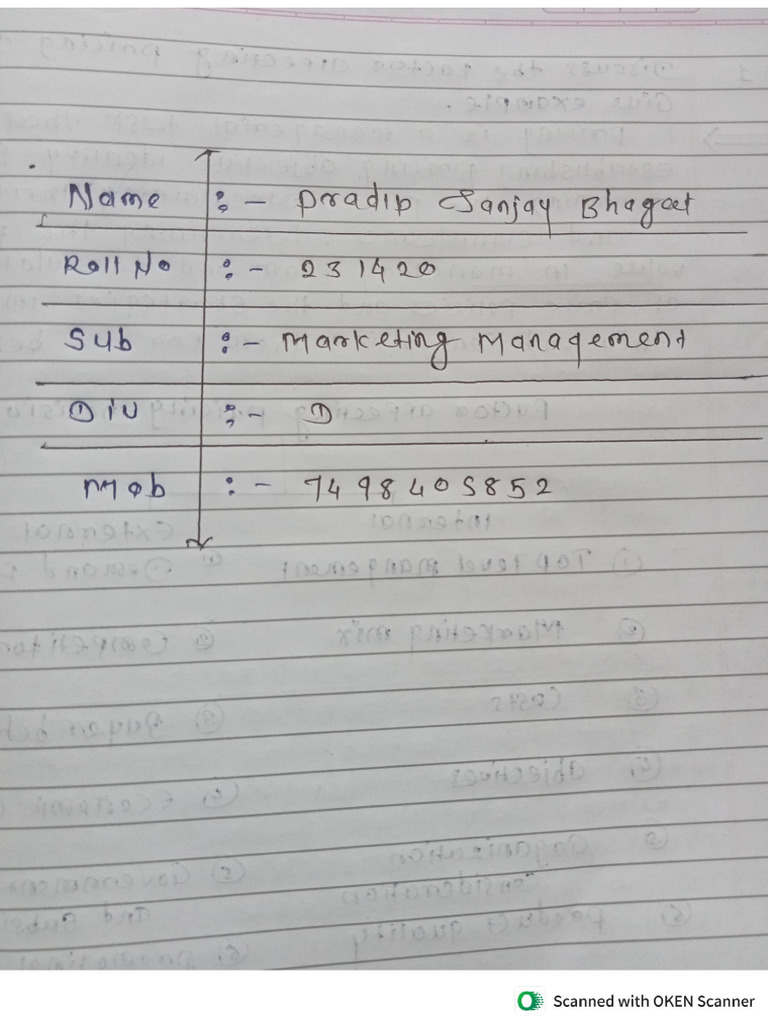 Name :- Pradip Sanjay Bhagat
Roll No :- 231420
Sub :- Marketing Management
Div :- D
Mob :- 7498405852
Scanned with OKEN Scanner